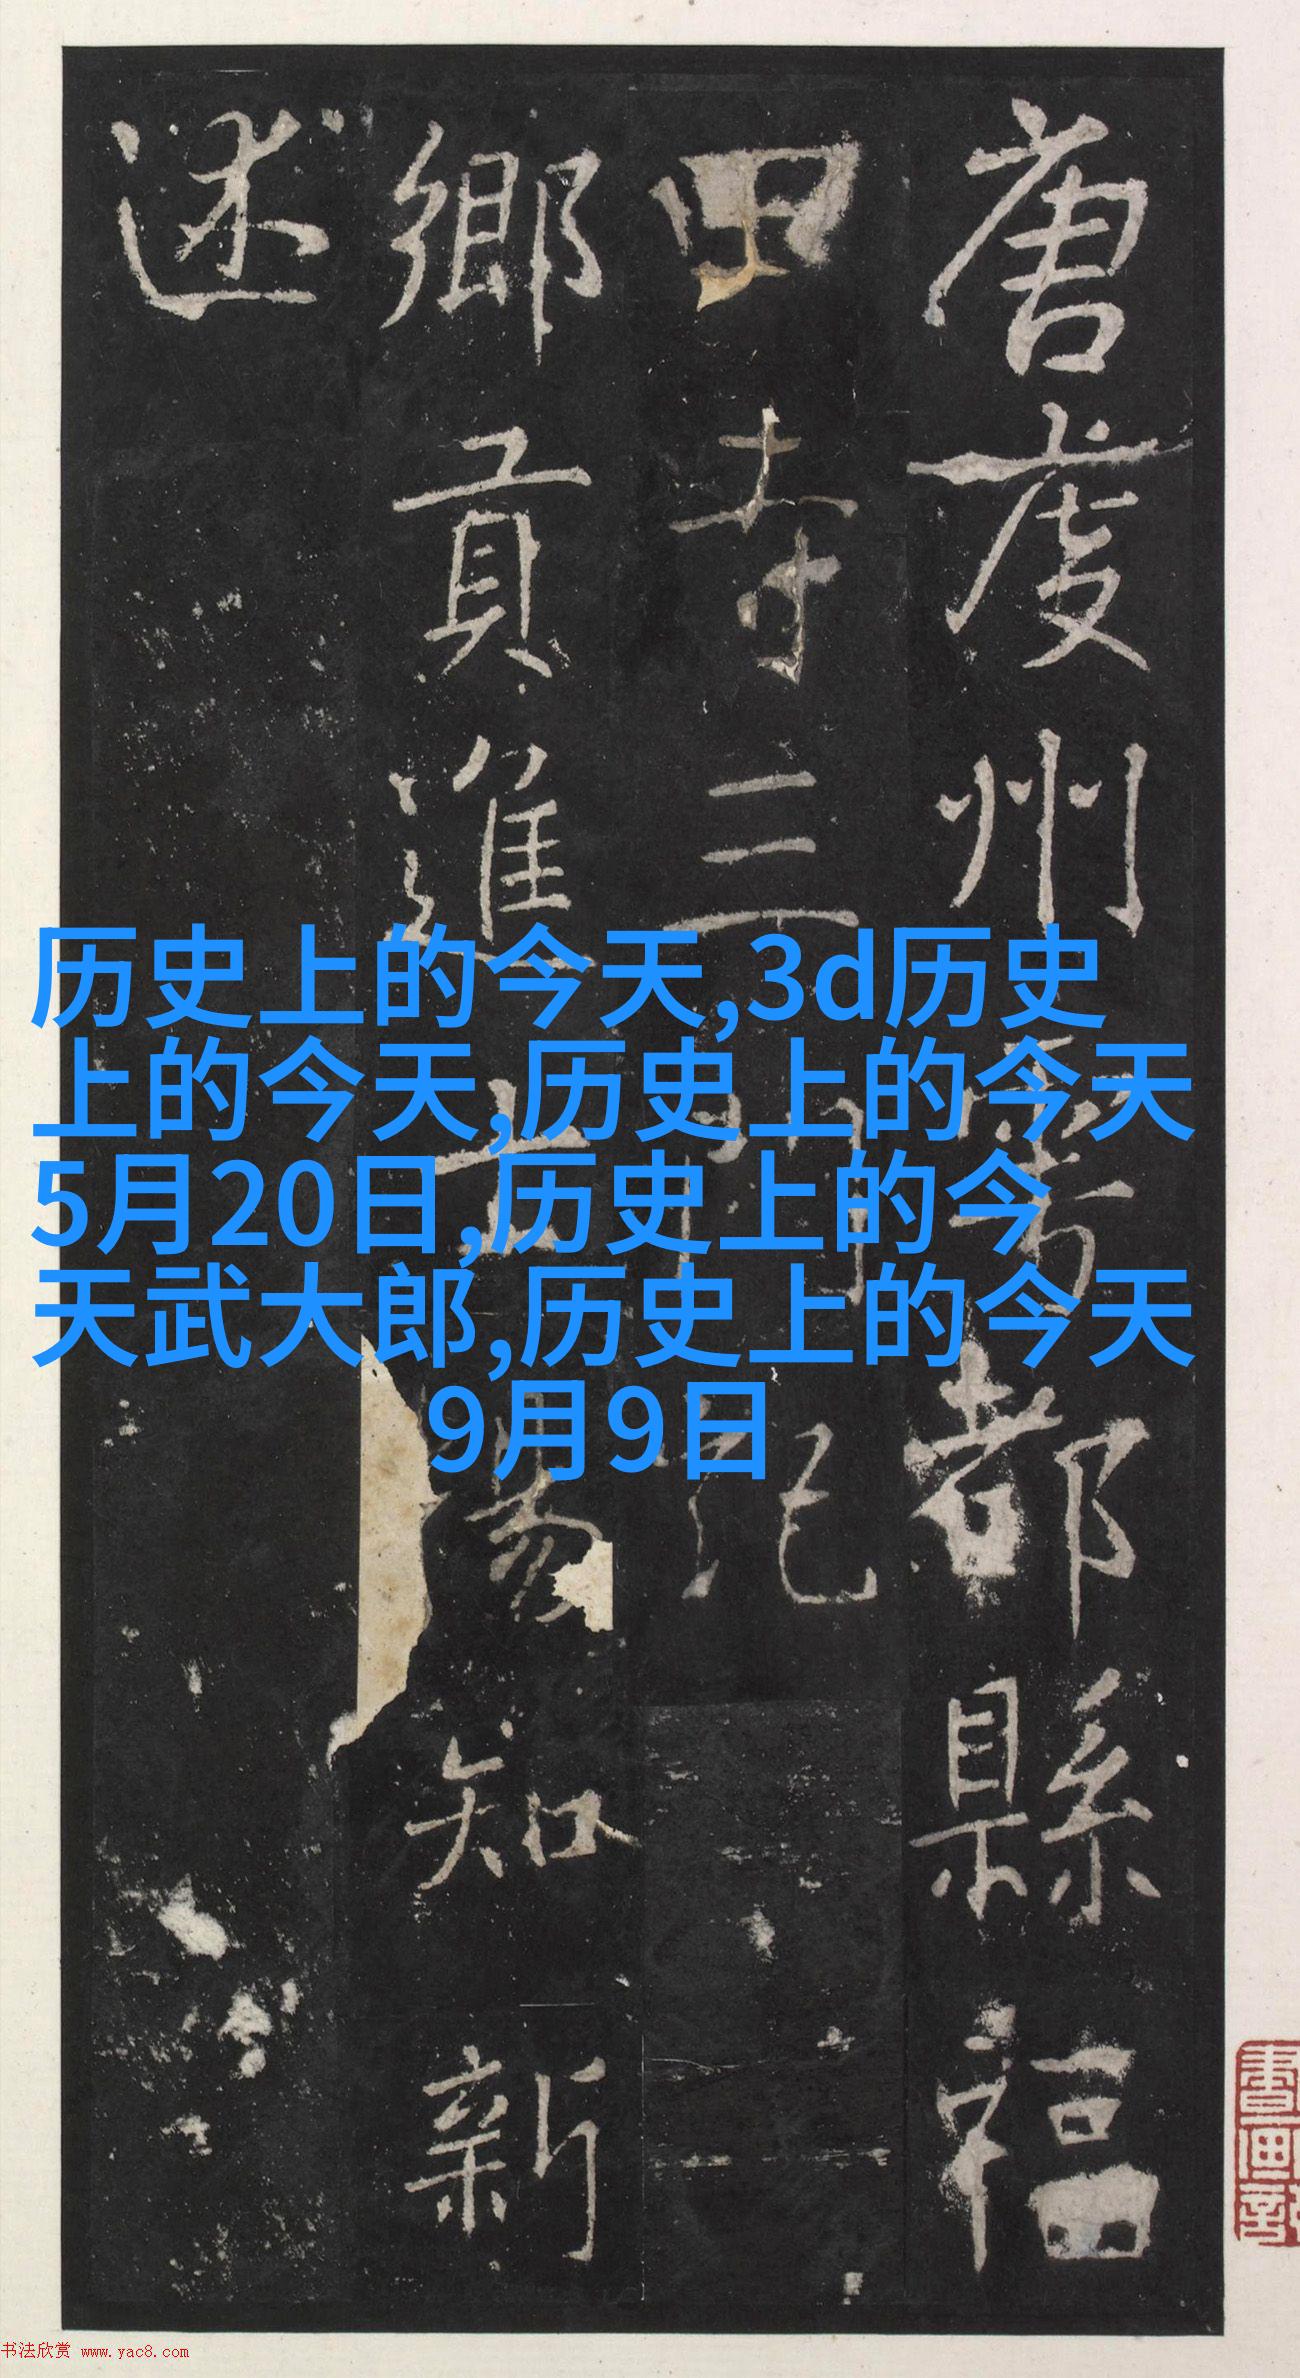 唐虔州雩都縣福
田寺三門記
鄉貢進士楊知新
述
历史上的今天,3d历史
上的今天,历史上的今天
5月20日,历史上的今
天武大郎,历史上的今天
9月9日
书法欣赏 www.yac8.com